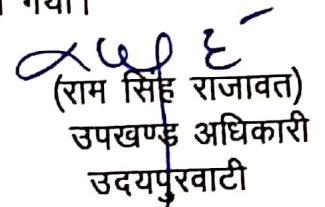 गया।
(राम सिंह राजावत)
उपखण्ड अधिकारी
उदयपुरवाटी